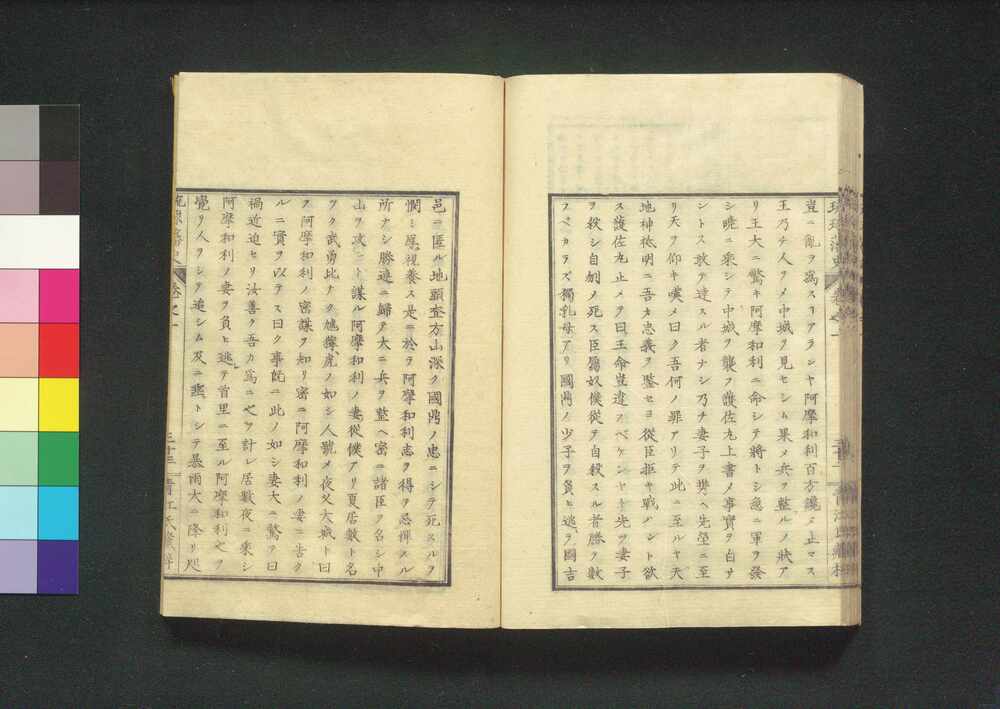 豈ニ亂ヲ爲スリアランヤ阿摩和利百方讒メ止マス
王乃チ人ヲメ中城ヲ見セシム果メ兵ヲ整ルノ狀ア
リ王大ニ驚キ阿摩和利ニ命シテ將トシ急ニ軍ヲ發
シ曉ニ乘シテ中城ヲ襲フ護佐丸上書メ事實ヲ白サ
ントス敢テ達スル者ナシ乃チ妻子ヲ携ヘ先塋ニ至
リ天ヲ仰キ嘆メ曰ク吾何ノ罪アリテ此ニ至ルヤ天
地神祇明ニ吾カ忠義ヲ鑒セヨ從臣拒キ戰ハント欲
ス護佐丸止メヲ曰王命豈違フベケンヤト先ツ妻子
ヲ殺シ自刎ノ死ス臣屬奴僕從テ自殺スル者勝ヲ數
フベカラズ獨乳母アリ國鼎ノ少子ヲ負ヒ逃ヲ國吉
琉球
卷之一
邑ニ匿ル地頭查方山深ク國鼎ノ忠ニシテ死スルヲ
憫ミ厚視養ス是ニ於ヲ阿摩和利志ヲ得ヲ忌憚スル
所ナシ勝連ニ歸ヲ大ニ兵ヲ整ヘ密ニ諸臣ヲ名シ中
山ヲ攻ント謀ル阿摩和利ノ妻從僕アリ夏居數ト名
ツク武勇比ナク尷 虎ノ如シ人號メ夜叉大城ト曰
フ阿摩和利ノ密謀ヲ知リ密ニ阿摩和利ノ妻ニ告ク
ルニ實ヲ以テス曰ク事既ニ此ノ如シ妻大ニ驚ヲ曰
禍近迫セリ汝善ク吾カ爲ニ之ヲ計レ居數夜ニ乘シ
阿摩和利ノ妻ヲ負ヒ逃ヲ首里ニ至ル阿摩和利之ヲ
覺リ人ヲシヲ追シム及ニ トシテ暴雨大ニ降リ咫
卷之一
三十三
青江氏藏梓